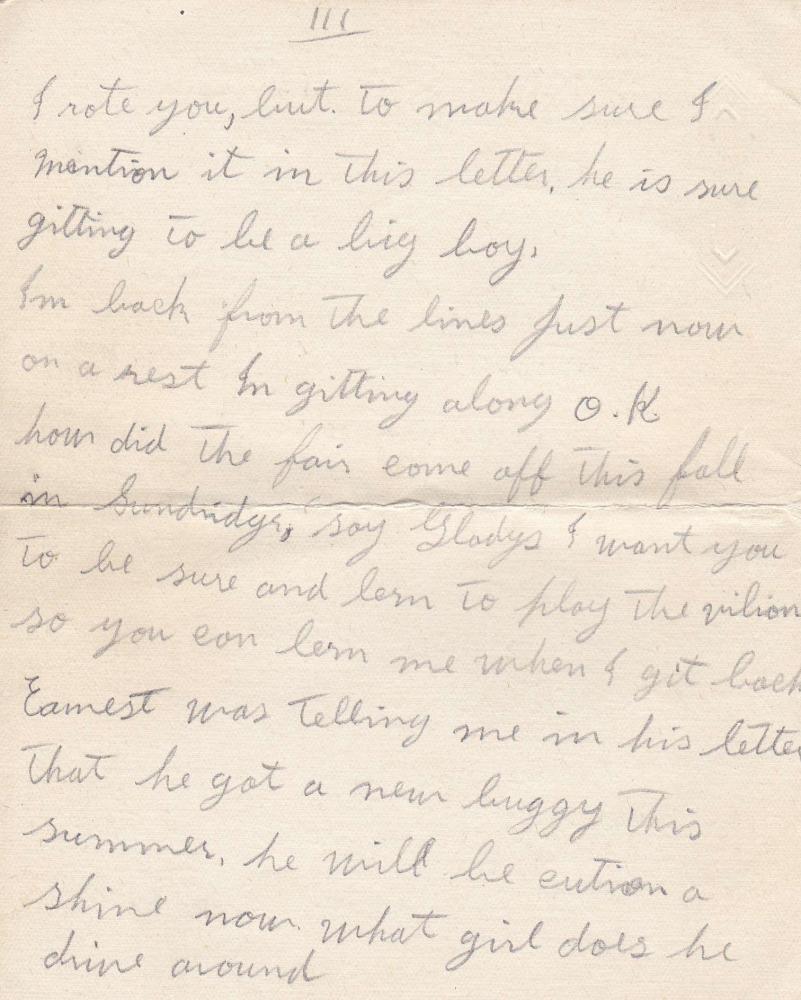 III
I rote you, but. to make sure I
mention it in this letter. he is sure
gitting to be a big boy.
Im back from the lines just now
on a rest Im gitting along O.K
how did the fair come off this fall
in Sundridge, say Gladys I want you
to be sure and lern to play the vilion
so you can lern me when I git back
Earnest was telling me in his letter
that he got a new buggy this
summer. he will be cution a
shine now. what girl does he
drive around